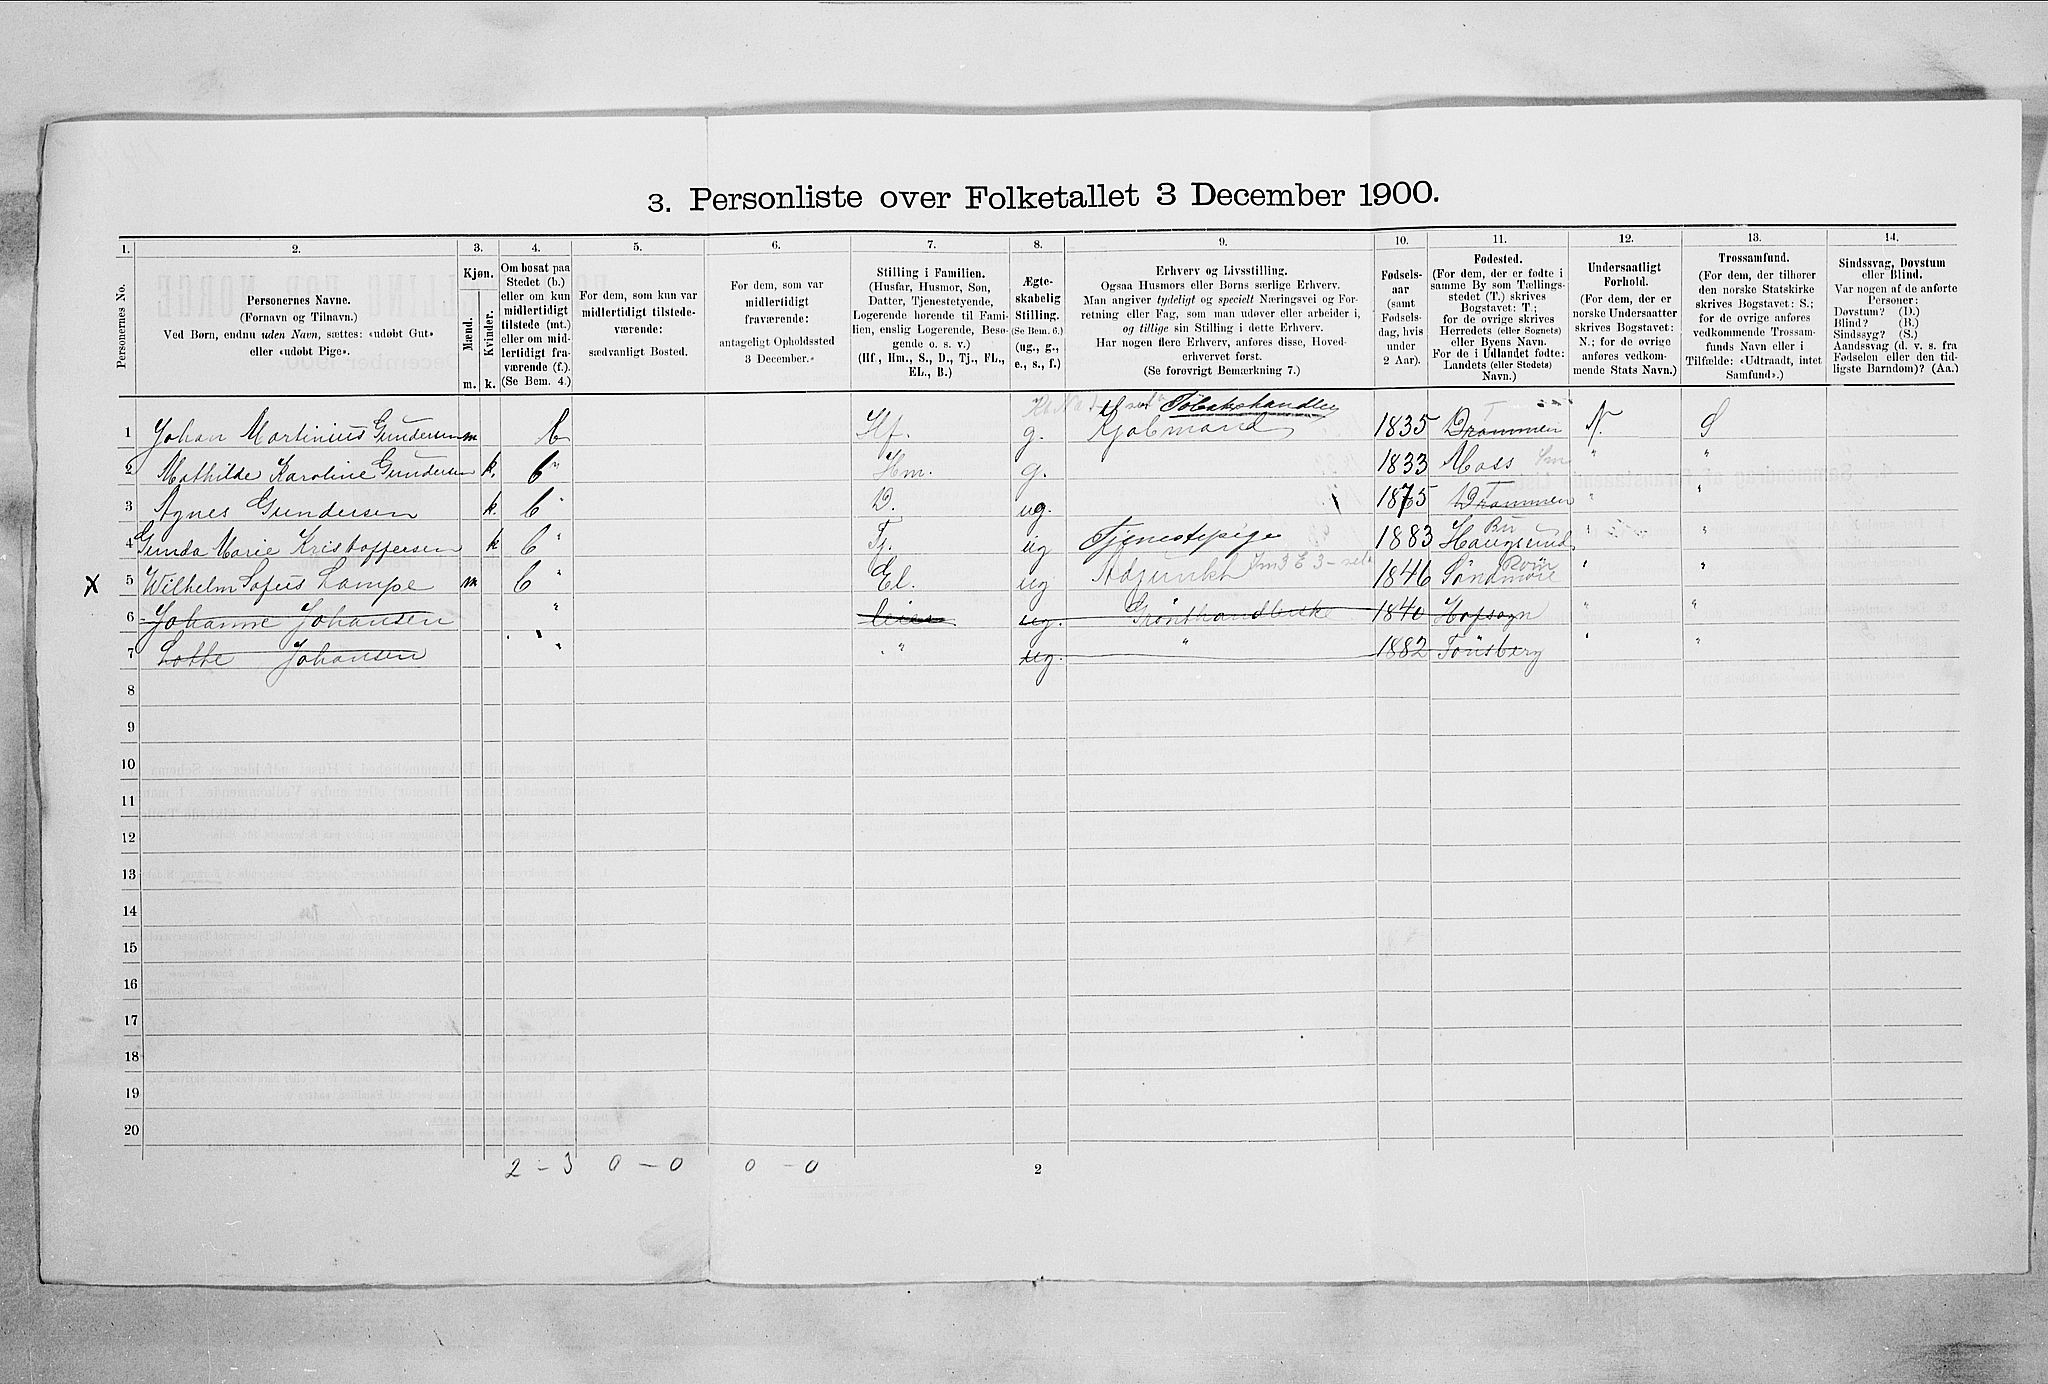 3. Personliste over Folketallet 3 December 1900.
1. 2. 3. 4. 5. 6. 7. 8. 9. 10. 11. 12. 13. 14.
Personernes No.
Personernes Navne.
(Fornavn og Tilnavn.)
Ved Børn, endnu uden Navn, sættes: «udøbt Gut»
eller «udøbt Pige».
Kjøn.
Mænd.
Kvinder.
m. k.
Om bosat paa
Stedet (b.)
eller om kun
midlertidigt
tilstede (mt.)
eller om mid-
lertidigt fra-
værende (f.).
(Se Bem. 4.)
For dem, som kun var
midlertidigt tilstede-
værende:
sædvanligt Bosted.
For dem, som var
midlertidigt
fraværende:
antageligt Opholdssted
3 December.
Stilling i Familien.
(Husfar, Husmor, Søn,
Datter, Tjenestetyende,
Logerende hørende til Fami-
lien, enslig Logerende, Besø-
gende o. s. v.)
(Hf., Hm., S., D., Tj., FL.,
EL., B.)
Ægte-
skabelig
Stilling.
(Se Bem. 6.)
(ug., g.,
e., s., f.)
Erhverv og Livsstilling.
Ogsaa Husmors eller Børns særlige Erhverv.
Man angiver tydeligt og specielt Næringsvei og For-
retning eller Fag, som man udøver eller arbeider i,
og tillige sin Stilling i dette Erhverv.
Har nogen flere Erhverv, anføres disse, Hoved-
erhvervet først.
(Se forøvrigt Bemærkning 7.)
Fødsels-
aar
(samt
Fødsels-
dag, hvis
under
2 Aar).
Fødested.
(For dem, der er fødte i
samme By som Tællings-
stedet (T.) skrives
Bogstavet: T.;
for de øvrige skrives
Herredets (eller Sognets)
eller Byens Navn.
For de i Udlandet fødte:
Landets (eller Stedets)
Navn.)
Undersaatligt
Forhold.
(For dem, der er
norske Undersaatter
skrives Bogstavet:
N.; for de øvrige
anføres vedkom-
mende Stats Navn.)
Trossamfund.
(For dem, der tilhører
den norske Statskirke
skrives Bogstavet: S.;
for de øvrige anføres
vedkommende Trossam-
funds Navn eller i
Tilfælde: «Udtraadt, intet
Samfund».)
Sindssvag, Døvstum
eller Blind.
Var nogen af de anførte
Personer:
Døvstum? (D.)
Blind? (B.)
Sindssyg? (S.)
Aandssvag (d. v. s. fra
Fødselen eller den tid-
ligste Barndom)? (Aa.)
Tobakshandler T
1 Johan Martinius Gundersen m b Hf. g. Kjøbmand 1835 Drammen N. S
2 Mathilde Karoline Gundersen k. b " Hm. g. 1833 Moss " "
3 Agnes Gundersen k. b " D. ug. 1875 Drammen T " "
4 Gunda Marie Kristoffersen k b " Tj. ug Tjenestepige 1883 Haugsund Bu " "
X 5 Wilhelm Sofus Lampe m b " El. ug Adjunkt 1846 Söndmöre Rom " "
6 Johanne Johansen " ug. Grönthandlerske 1840 Hofsogn " "
7 Lotte Johansen " " ug. " 1882 Tönsberg " "
8
9
10
11
12
13
14
15
16
17
18
19
20
2 – 3 0 – 0 0 – 0 2